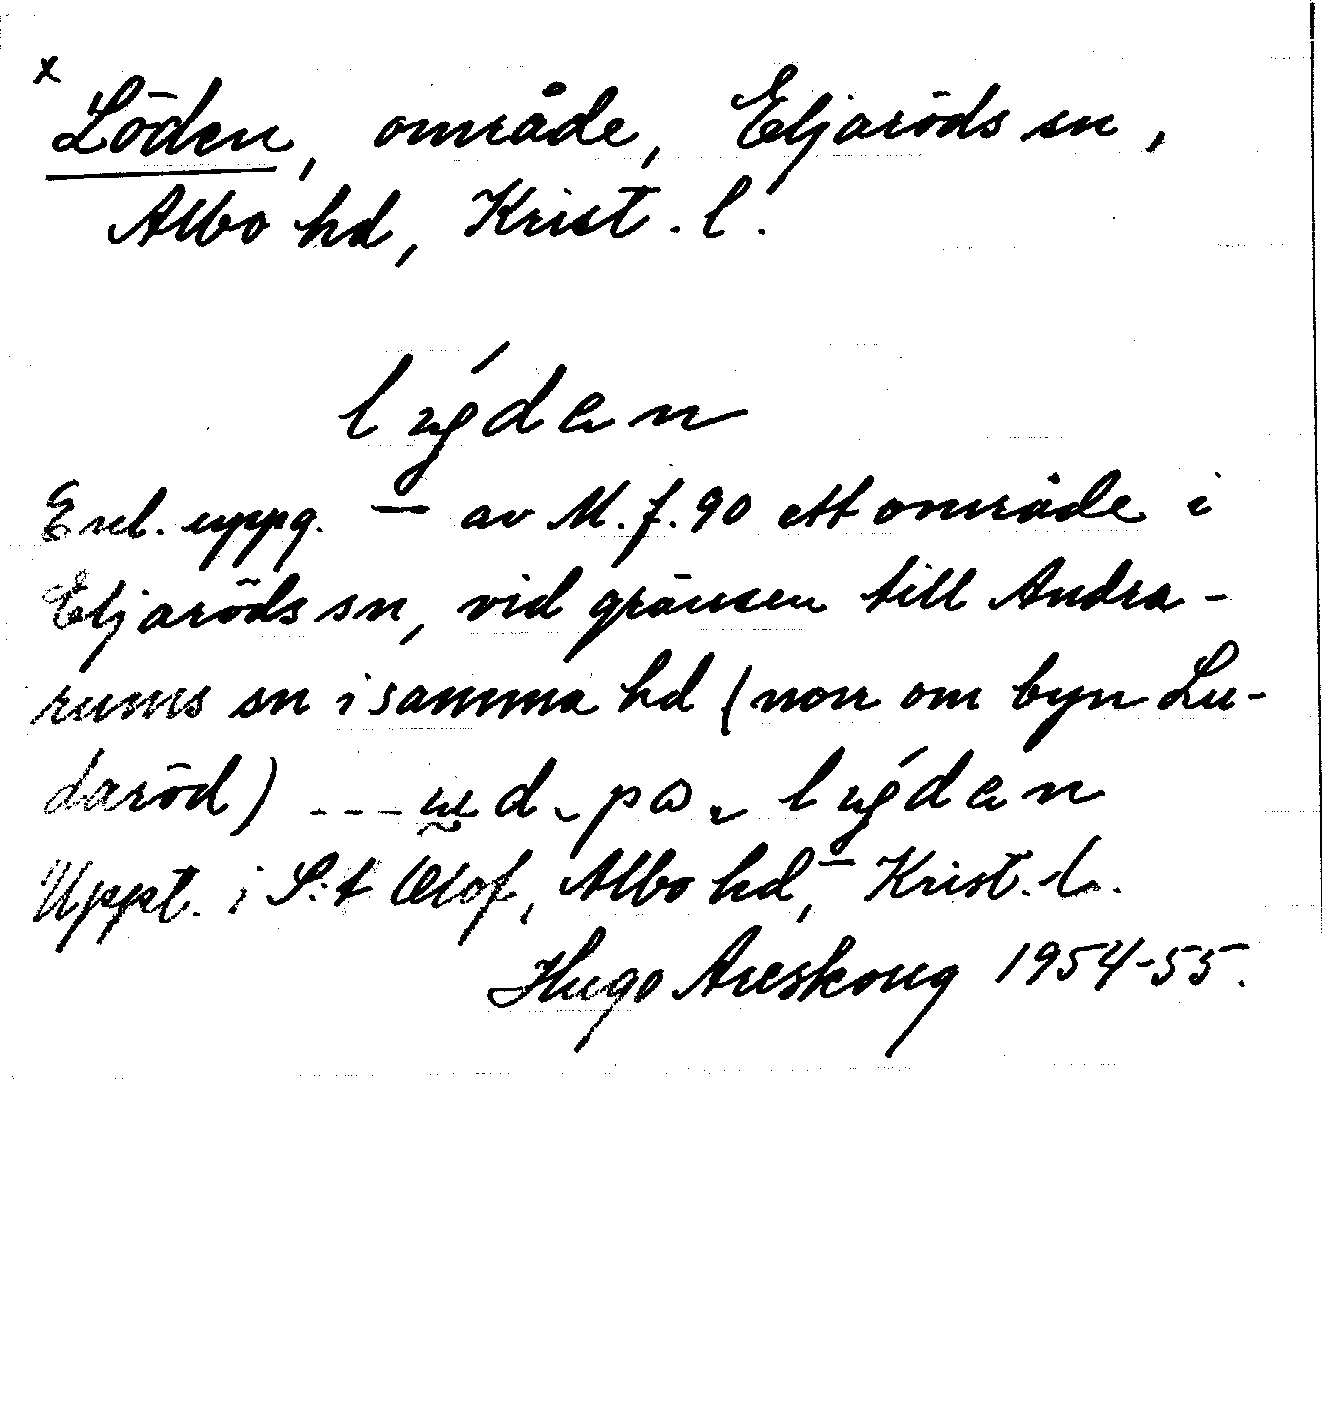 x
Löden, område, Eljaröds sn,
Albo hd, Krist. l.
Enl. uppg. — av M. f. 90 ett område i
Eljaröds sn, vid gränsen till Andra-
rums sn i samma hd (norr om byn Lu-
daröd) ---
Uppt. i S:t Olof, Albo hd, Krist. l.
Hugo Areskoug 1954-55.